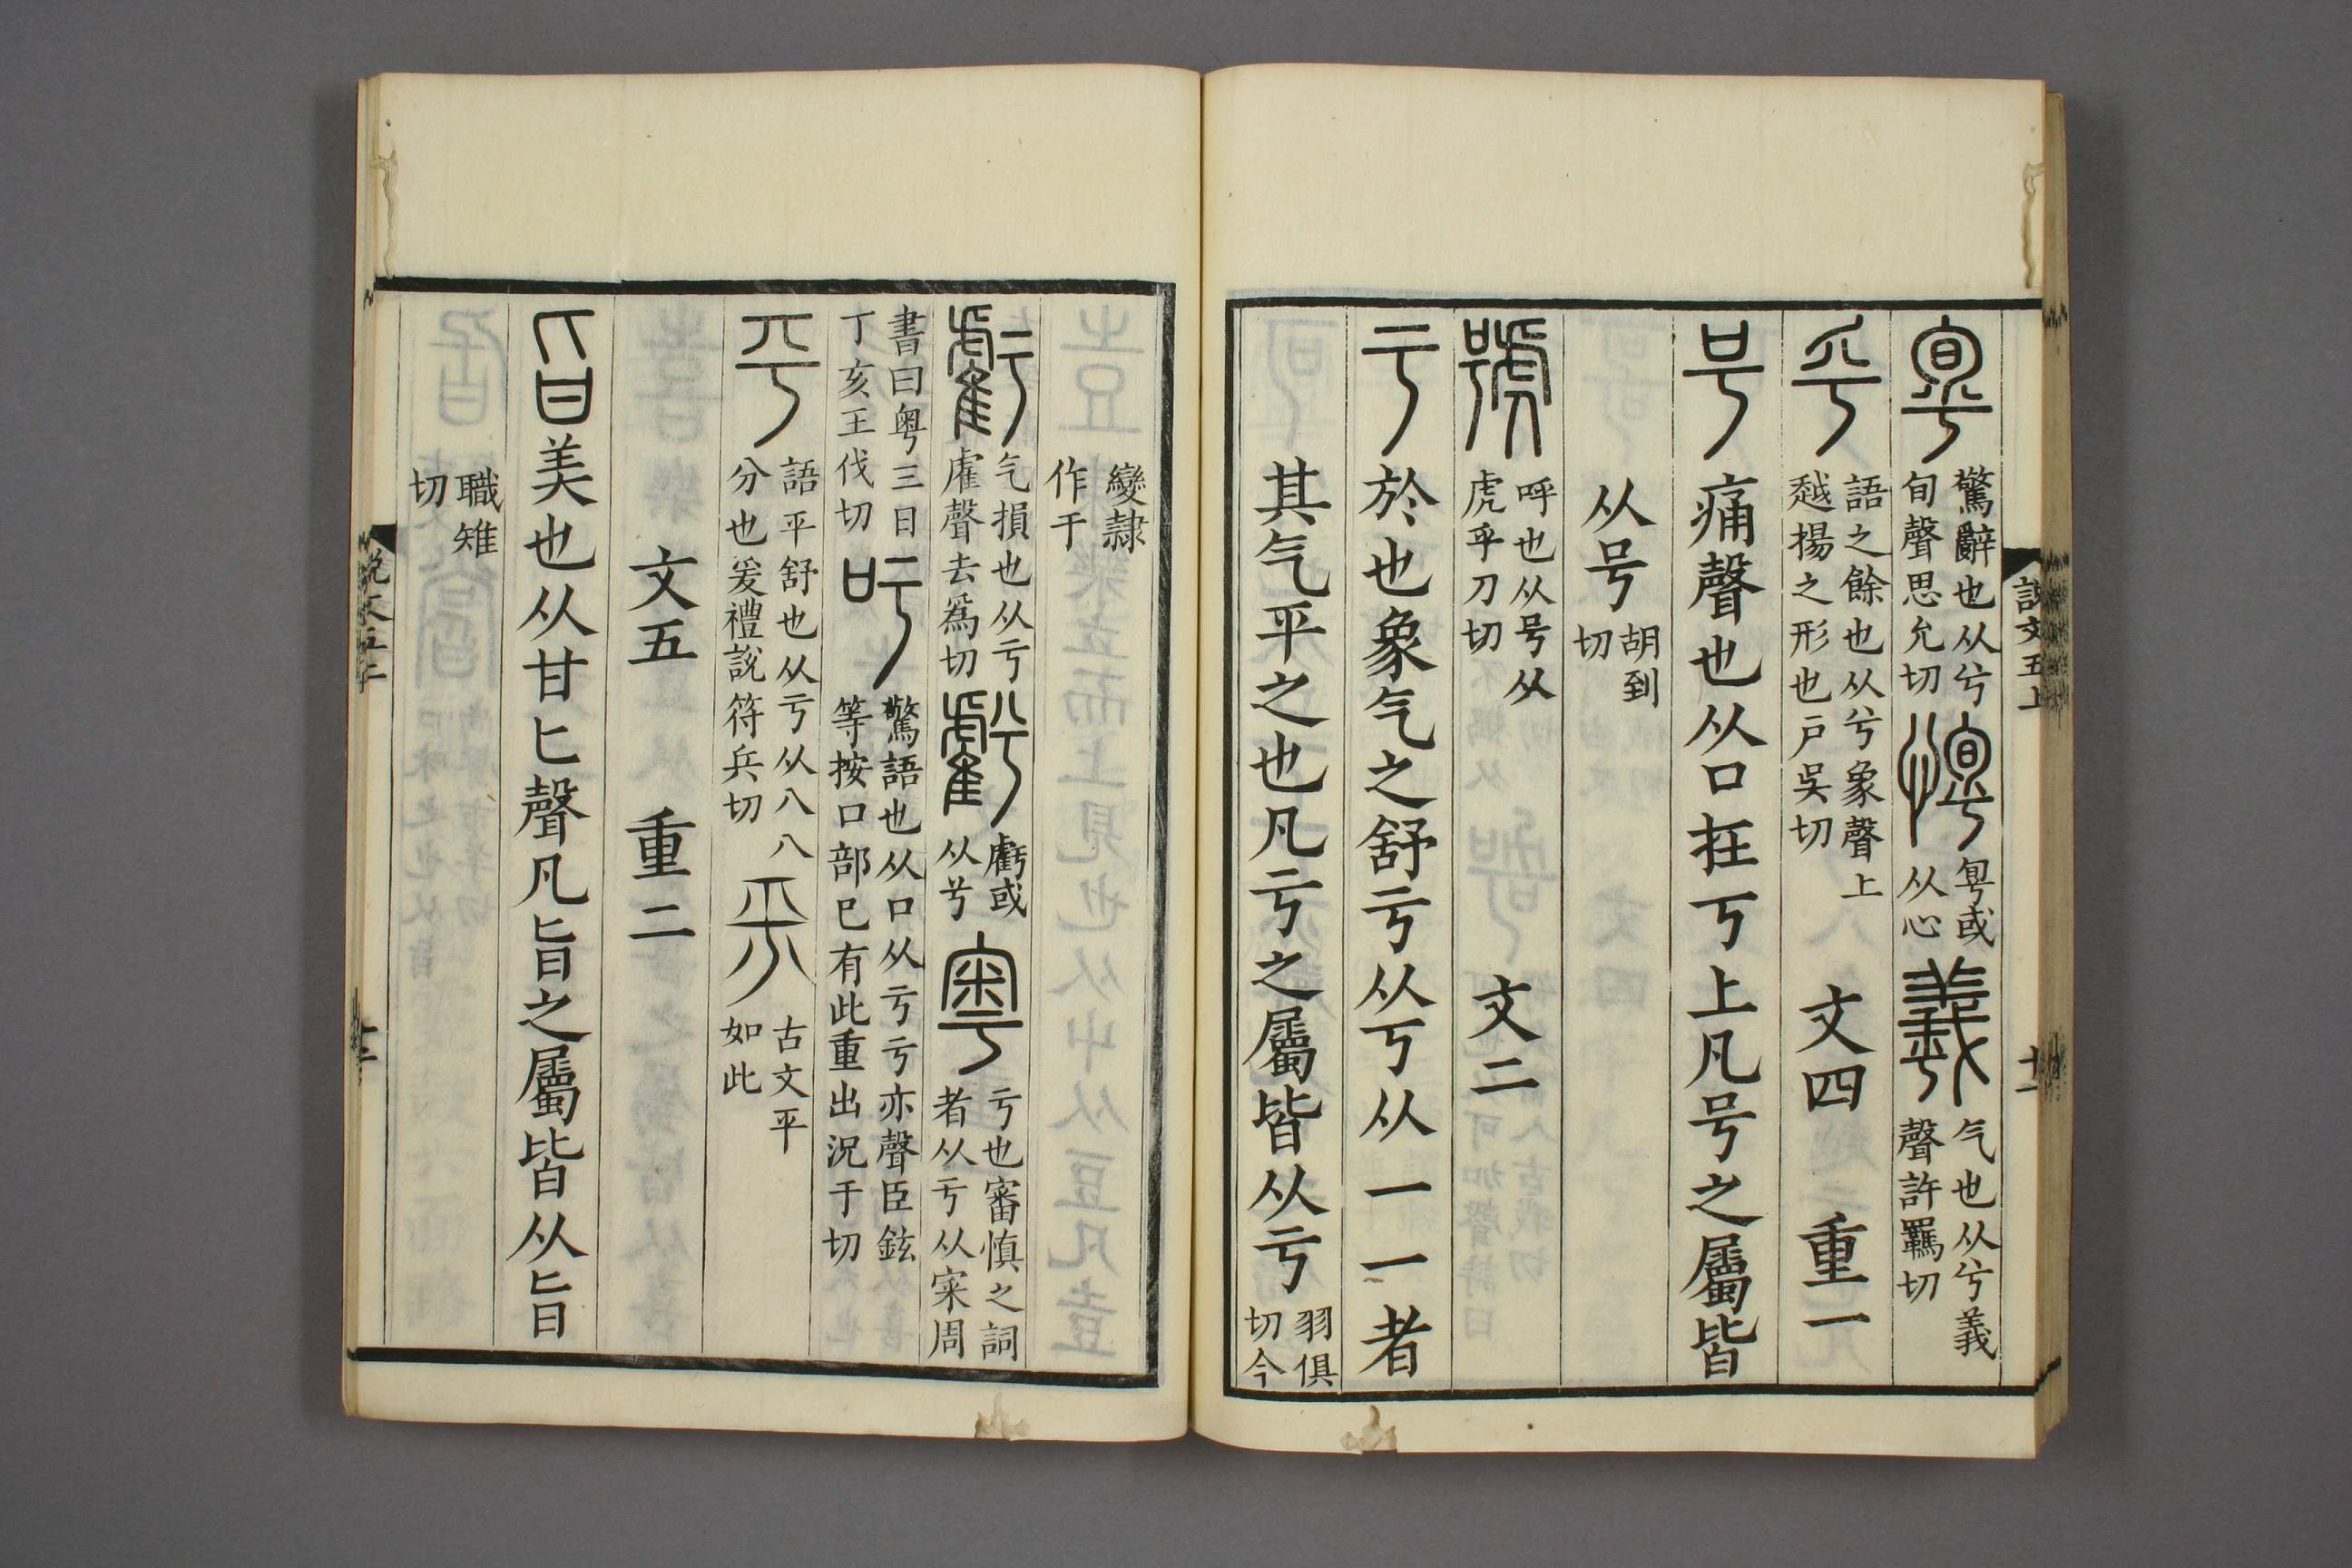 𠷎驚辭也从兮旬聲思允切惸𠷎或从心羲气也从兮義聲許羈切
乎語之餘也从兮象聲上越揚之形也戶吳切 文四 重一
号痛聲也从口在丂上凡号之屬皆
从号胡到切
號呼也从号从虎乎刀切 文二
亏於也象气之舒亏从丂从一一者
其气平之也凡亏之屬皆从亏羽俱切今
變隸作于
虧气損也从亏雐聲去爲切𧇾虧或从兮粵亏也審慎之詞者从亏从宷周
書曰粵三日丁亥王伐切吁驚語也从口从亏亏亦聲臣鉉等按口部已有此重出況于切
平語平舒也从亏从八八分也爰禮說符兵切𠀾古文平如此
文五 重二
旨美也从甘匕聲凡旨之屬皆从旨
職雉切
說文五上
十二